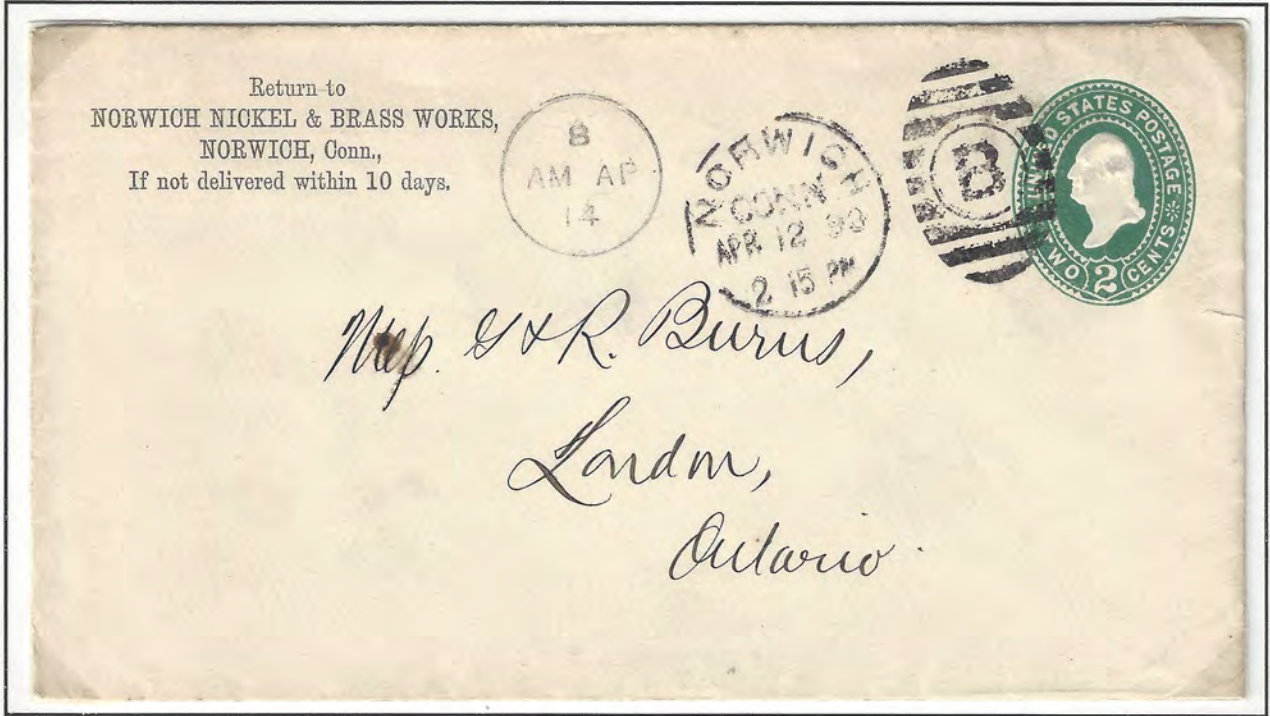 Return to
NORWICH NICKEL & BRASS WORKS,
NORWICH, Conn.,
If not delivered within 10 days.
8
AM AP
14
NORWICH
CONN
APR 12 90
2 15 PM
B
UNITED STATES POSTAGE
TWO 2 CENTS
G & R. Burns,
London,
Ontario